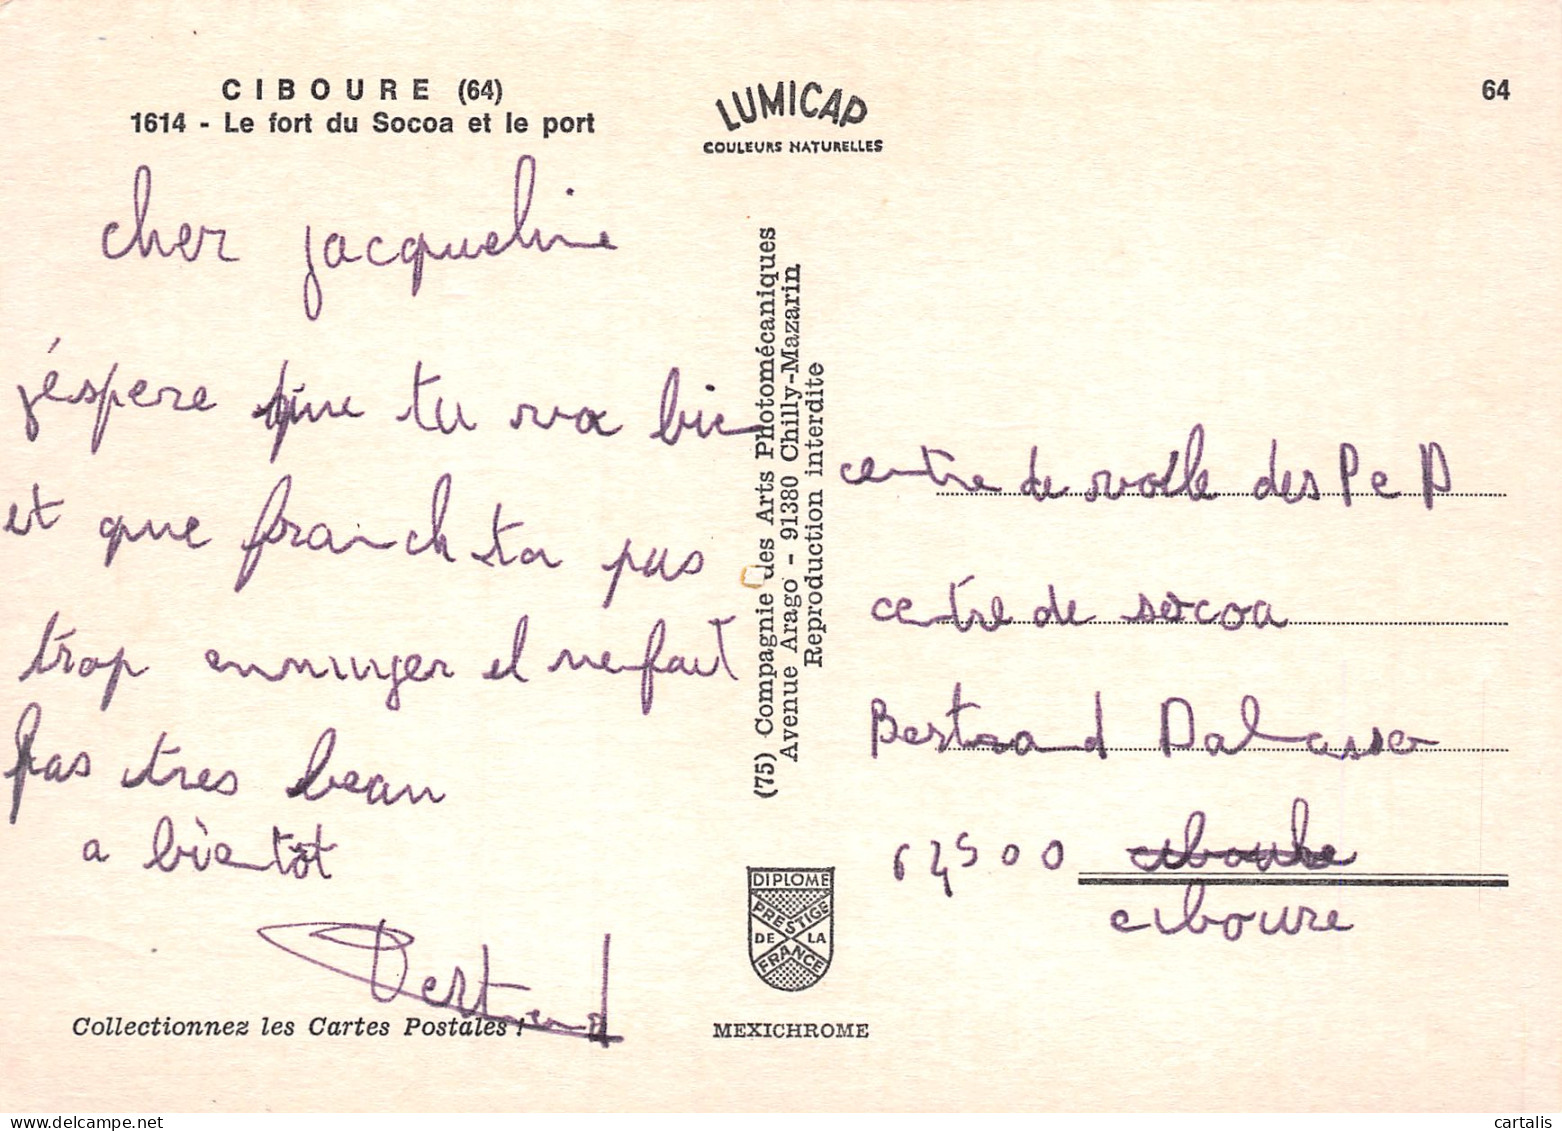 CIBOURE (64)
1614 - Le fort du Socoa et le port
LUMICAP
COULEURS NATURELLES
64
cher jacqueline
j'éspere que tu va bie
et que franck ta pas
trop ennuyer el ne fait
pas tres beau
a bientôt
Bertrand
Collectionnez les Cartes Postales !
(75) Compagnie des Arts Photomécaniques
Avenue Arago - 91380 Chilly-Mazarin
Reproduction interdite
DIPLOME
PRESTIGE
DE LA
FRANCE
MEXICHROME
centre de voille des P e P
centre de socoa
Bertrand
64500
ciboure
cartalis